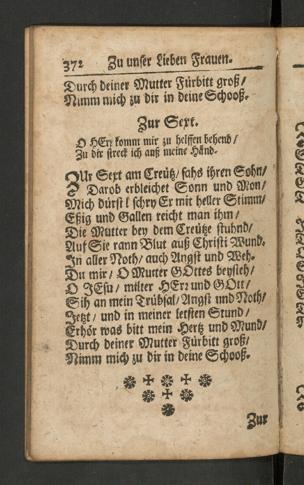 372 Zu unser Lieben Frauen.
Durch deiner Mutter Fürbitt groß/
Nimm mich zu dir in deine Schooß.
Zur Sext.
O HErr komm mir zu helffen behend/
Zu dir streck ich auß meine Händ.
ZUr Sext am Creütz/ sahs ihren Sohn/
Darob erbleichet Sonn und Mon/
Mich dürst! schry Er mit heller Stimm/
Eßig und Gallen reicht man ihm/
Die Mutter bey dem Creütze stuhnd/
Auf Sie rann Blut auß Christi Wund.
In aller Noth/ auch Angst und Weh.
Du mir/ O Mutter GOttes beysteh/
O JEsu/ milter HErr und GOtt/
Sih an mein Trübsal/ Angst und Noth/
Jetzt/ und in meiner letsten Stund/
Erhör was bitt mein Hertz und Mund/
Durch deiner Mutter Fürbitt groß/
Nimm mich zu dir in deine Schooß.
Zur